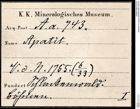 K. K. Mineralogisches Museum.
Acq. Post A. a. 743.
Name Apatit.
V. d. N. 1765.
Fundort Schlackenwald.
Böhmen.